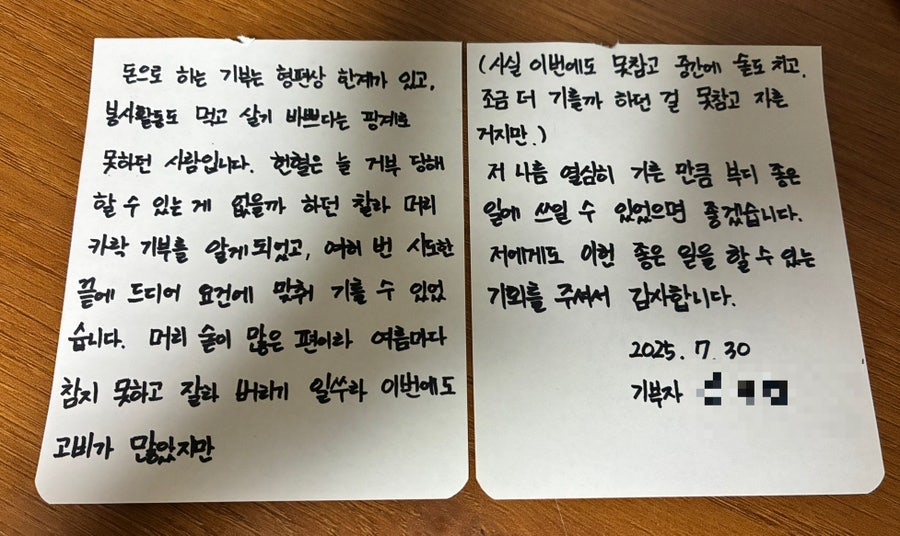 돈으로 하는 기부는 형편상 한계가 있고,
봉사활동도 먹고 살기 바쁘다는 핑계로
못하던 사람입니다. 헌혈은 늘 거부 당해
할 수 있는 게 없을까 하던 찰라 머리
카락 기부를 알게 되었고, 여러 번 시도한
끝에 드디어 요건에 맞춰 기를 수 있었
습니다. 머리 숱이 많은 편이라 여름마다
참지 못하고 잘라 버리기 일쑤라 이번에도
고비가 많았지만
(사실 이번에도 못참고 중간에 숱도 치고,
조금 더 기를까 하던 걸 못참고 자른
거지만.)
저 나름 열심히 기른 만큼 부디 좋은
일에 쓰일 수 있었으면 좋겠습니다.
저에게도 이런 좋은 일을 할 수 있는
기회를 주셔서 감사합니다.
2025. 7. 30
기부자